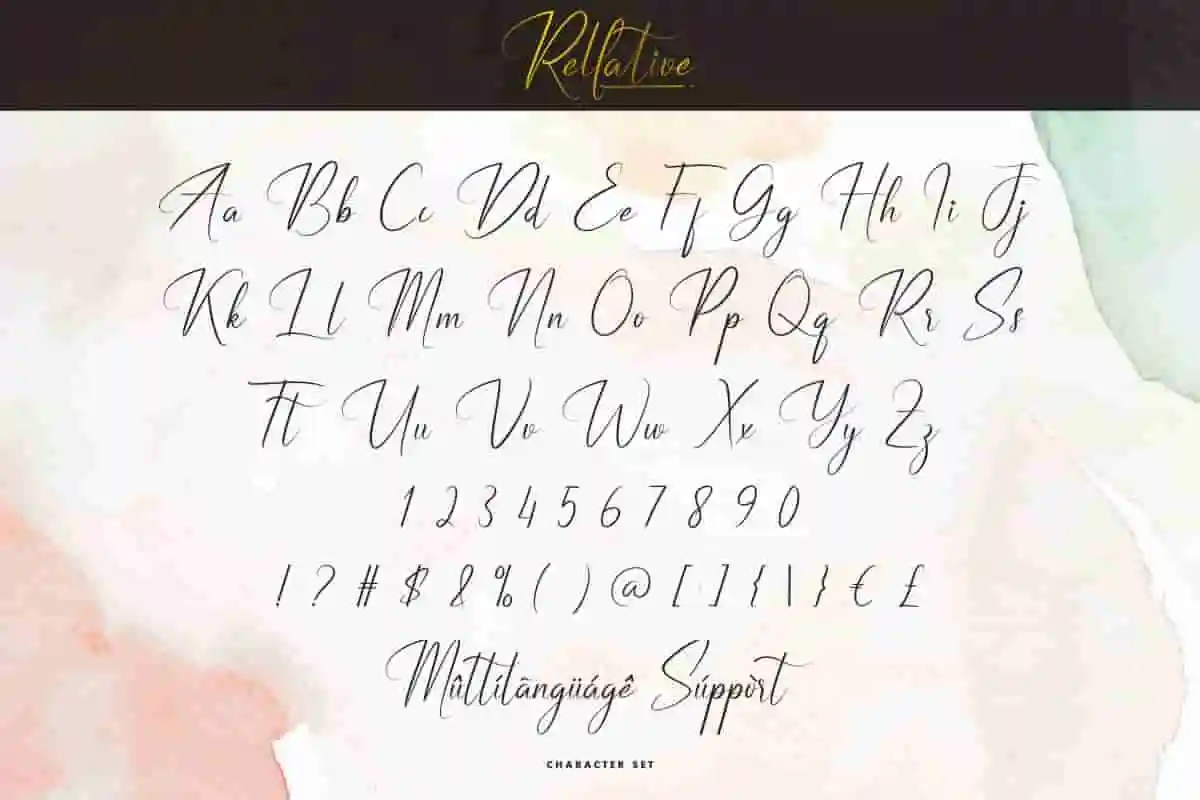 Rellative
Aa Bb Cc Dd Ee Ff Gg Hh Ii Jj
Kk Ll Mm Nn Oo Pp Qq Rr Ss
Tt Uu Vv Ww Xx Yy Zz
1 2 3 4 5 6 7 8 9 0
! ? # $ & % ( ) @ [ ] { \ } € £
Mûttílãngüágê Súppòrt
CHARACTER SET